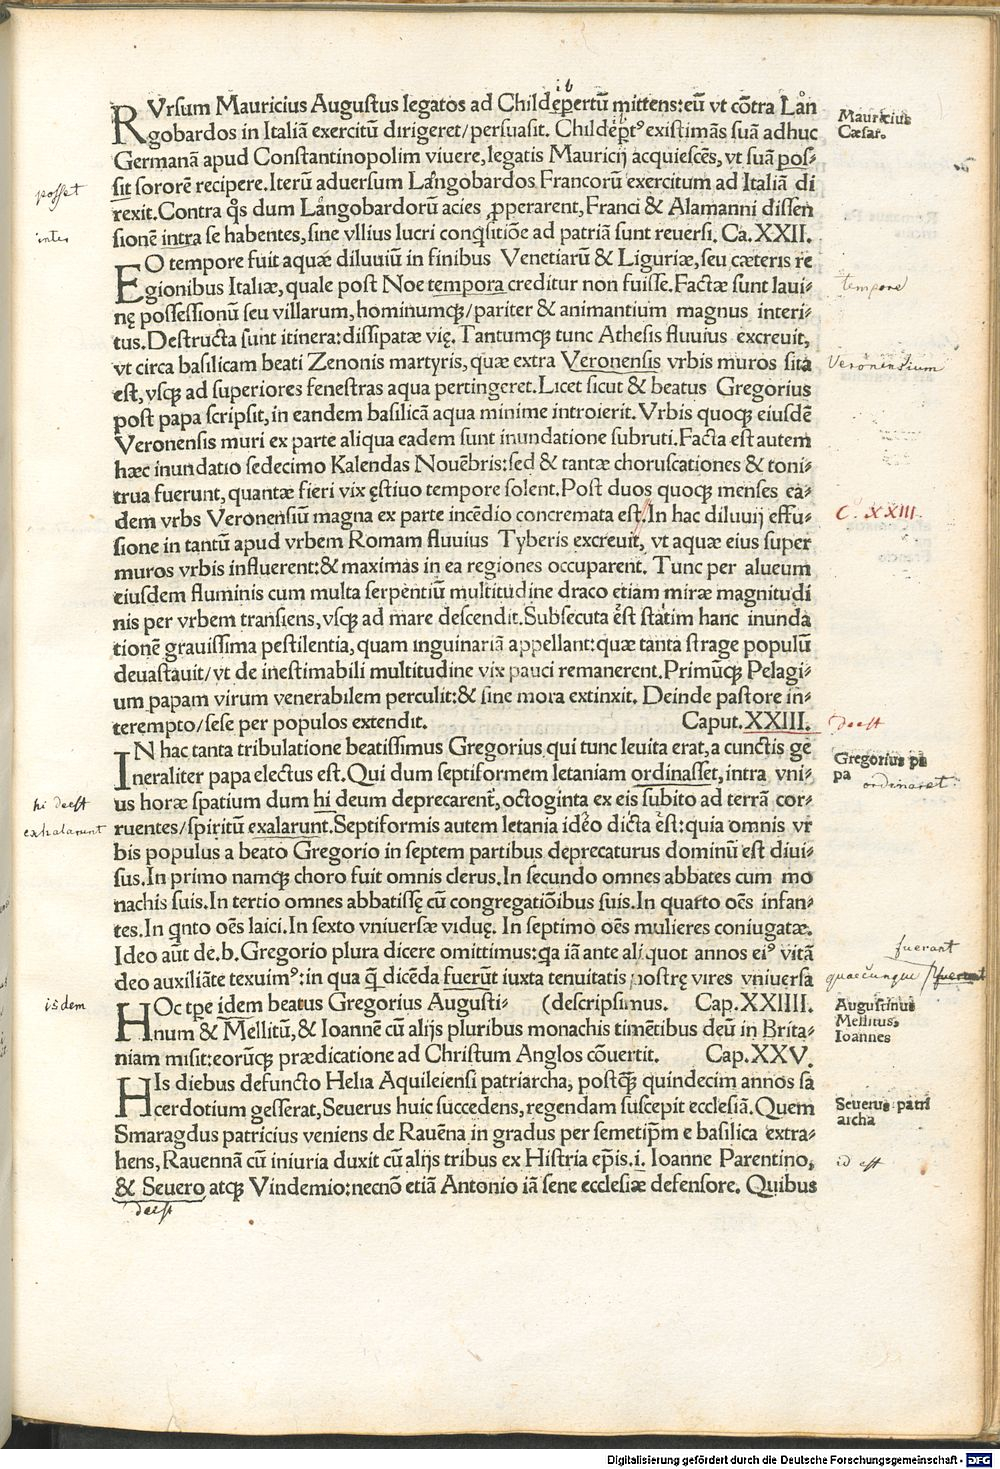 RVrsum Mauricius Augustus legatos ad Childepertū mittens:eū vt cōtra Lan
gobardos in Italiā exercitū dirigeret/persuasit. Childeꝑtꝰ existimās suā adhuc
Germanā apud Constantinopolim viuere,legatis Mauricij acquiescēs, vt suā pos⸗
sit sororē recipere.Iterū aduersum Langobardos Francorū exercitum ad Italiā di
rexit.Contra q̊s dum Langobardorū acies ꝓperarent,Franci & Alamanni dissen
sionē intra se habentes,sine vllius lucri conq̊sitiōe ad patriā sunt reuersi. Ca.XXII.
EO tempore fuit aquæ diluuiū in finibus Venetiarū & Liguriæ, seu cæteris re
gionibus Italiæ, quale post Noe tempora creditur non fuisse.Factæ sunt laui⸗
nę possessionū seu villarum,hominumqꝫ/pariter & animantium magnus interi⸗
tus.Destructa sunt itinera:dissipatæ vię. Tantumqꝫ tunc Athesis fluuius excreuit,
vt circa basilicam beati Zenonis martyris, quæ extra Veronensis vrbis muros sita
est, vsqꝫ ad superiores fenestras aqua pertingeret.Licet sicut & beatus Gregorius
post papa scripsit, in eandem basilicā aqua minime introierit. Vrbis quoqꝫ eiusdē
Veronensis muri ex parte aliqua eadem sunt inundatione subruti.Facta est autem
hæc inundatio sedecimo Kalendas Nouēbris:sed & tantæ choruscationes & toni⸗
trua fuerunt, quantæ fieri vix ęstiuo tempore solent.Post duos quoqꝫ menses ea⸗
dem vrbs Veronensiū magna ex parte incēdio concremata est.In hac diluuij effu⸗
sione in tantū apud vrbem Romam fluuius Tyberis excreuit, vt aquæ eius super
muros vrbis influerent:& maximas in ea regiones occuparent. Tunc per alueum
eiusdem fluminis cum multa serpentiū multitudine draco etiam miræ magnitudi
nis per vrbem transiens, vsqꝫ ad mare descendit.Subsecuta est statim hanc inunda
tionē grauissima pestilentia, quam inguinariā appellant:quæ tanta strage populū
deuastauit/vt de inestimabili multitudine vix pauci remanerent.Primūqꝫ Pelagi⸗
um papam virum venerabilem perculit:& sine mora extinxit. Deinde pastore in⸗
terempto/sese per populos extendit. Caput.XXIII.
IN hac tanta tribulatione beatissimus Gregorius qui tunc leuita erat,a cunctis ge
neraliter papa electus est.Qui dum septiformem letaniam ordinasset, intra vni⸗
us horæ spatium dum hi deum deprecarent,octoginta ex eis subito ad terrā cor⸗
ruentes/spiritū exalarunt.Septiformis autem letania ideo dicta est:quia omnis vr
bis populus a beato Gregorio in septem partibus deprecaturus dominū est diui⸗
sus.In primo namqꝫ choro fuit omnis clerus.In secundo omnes abbates cum mo
nachis suis.In tertio omnes abbatissę cū congregatiōibus suis.In quarto oēs infan⸗
tes.In qͥnto oēs laici.In sexto vniuersæ viduę. In septimo oēs mulieres coniugatæ.
Ideo aūt de.b.Gregorio plura dicere omittimus:qa iā ante aliquot annos eiꝰ vitā
deo auxiliāte texuimꝰ:in qua q̄ dicēda fuerūt iuxta tenuitatis nostrę vires vniuersa
HOc tpe idem beatus Gregorius Augusti⸗ (descripsimus. Cap.XXIIII.
num & Mellitū,& Ioannē cū alijs pluribus monachis timētibus deū in Brita⸗
niam misit:eorūqꝫ prædicatione ad Christum Anglos cōuertit. Cap.XXV.
HIs diebus defuncto Helia Aquileiensi patriarcha, postq̄ꝫ quindecim annos sa
cerdotium gesserat, Seuerus huic succedens, regendam suscepit ecclesiā.Quem
Smaragdus patricius veniens de Rauēna in gradus per semetip̄m e basilica extra⸗
hens,Rauennā cū iniuria duxit cū alijs tribus ex Histria ep̄is.i. Ioanne Parentino,
& Seuero atqꝫ Vindemio:necnō etiā Antonio iā sene ecclesiæ defensore. Quibus
Mauricius
Cæsar.
posset
inter
tempore
Veronensium
C. XXIII.
deest
Gregorius pa
pa
ordinaret.
hi deest
exhalarunt
fuerant
quaecunque
isdem
Augustinus
Mellitus,
Ioannes
Seuerus patri
archa
id est
deest
Digitalisierung gefördert durch die Deutsche Forschungsgemeinschaft - DFG